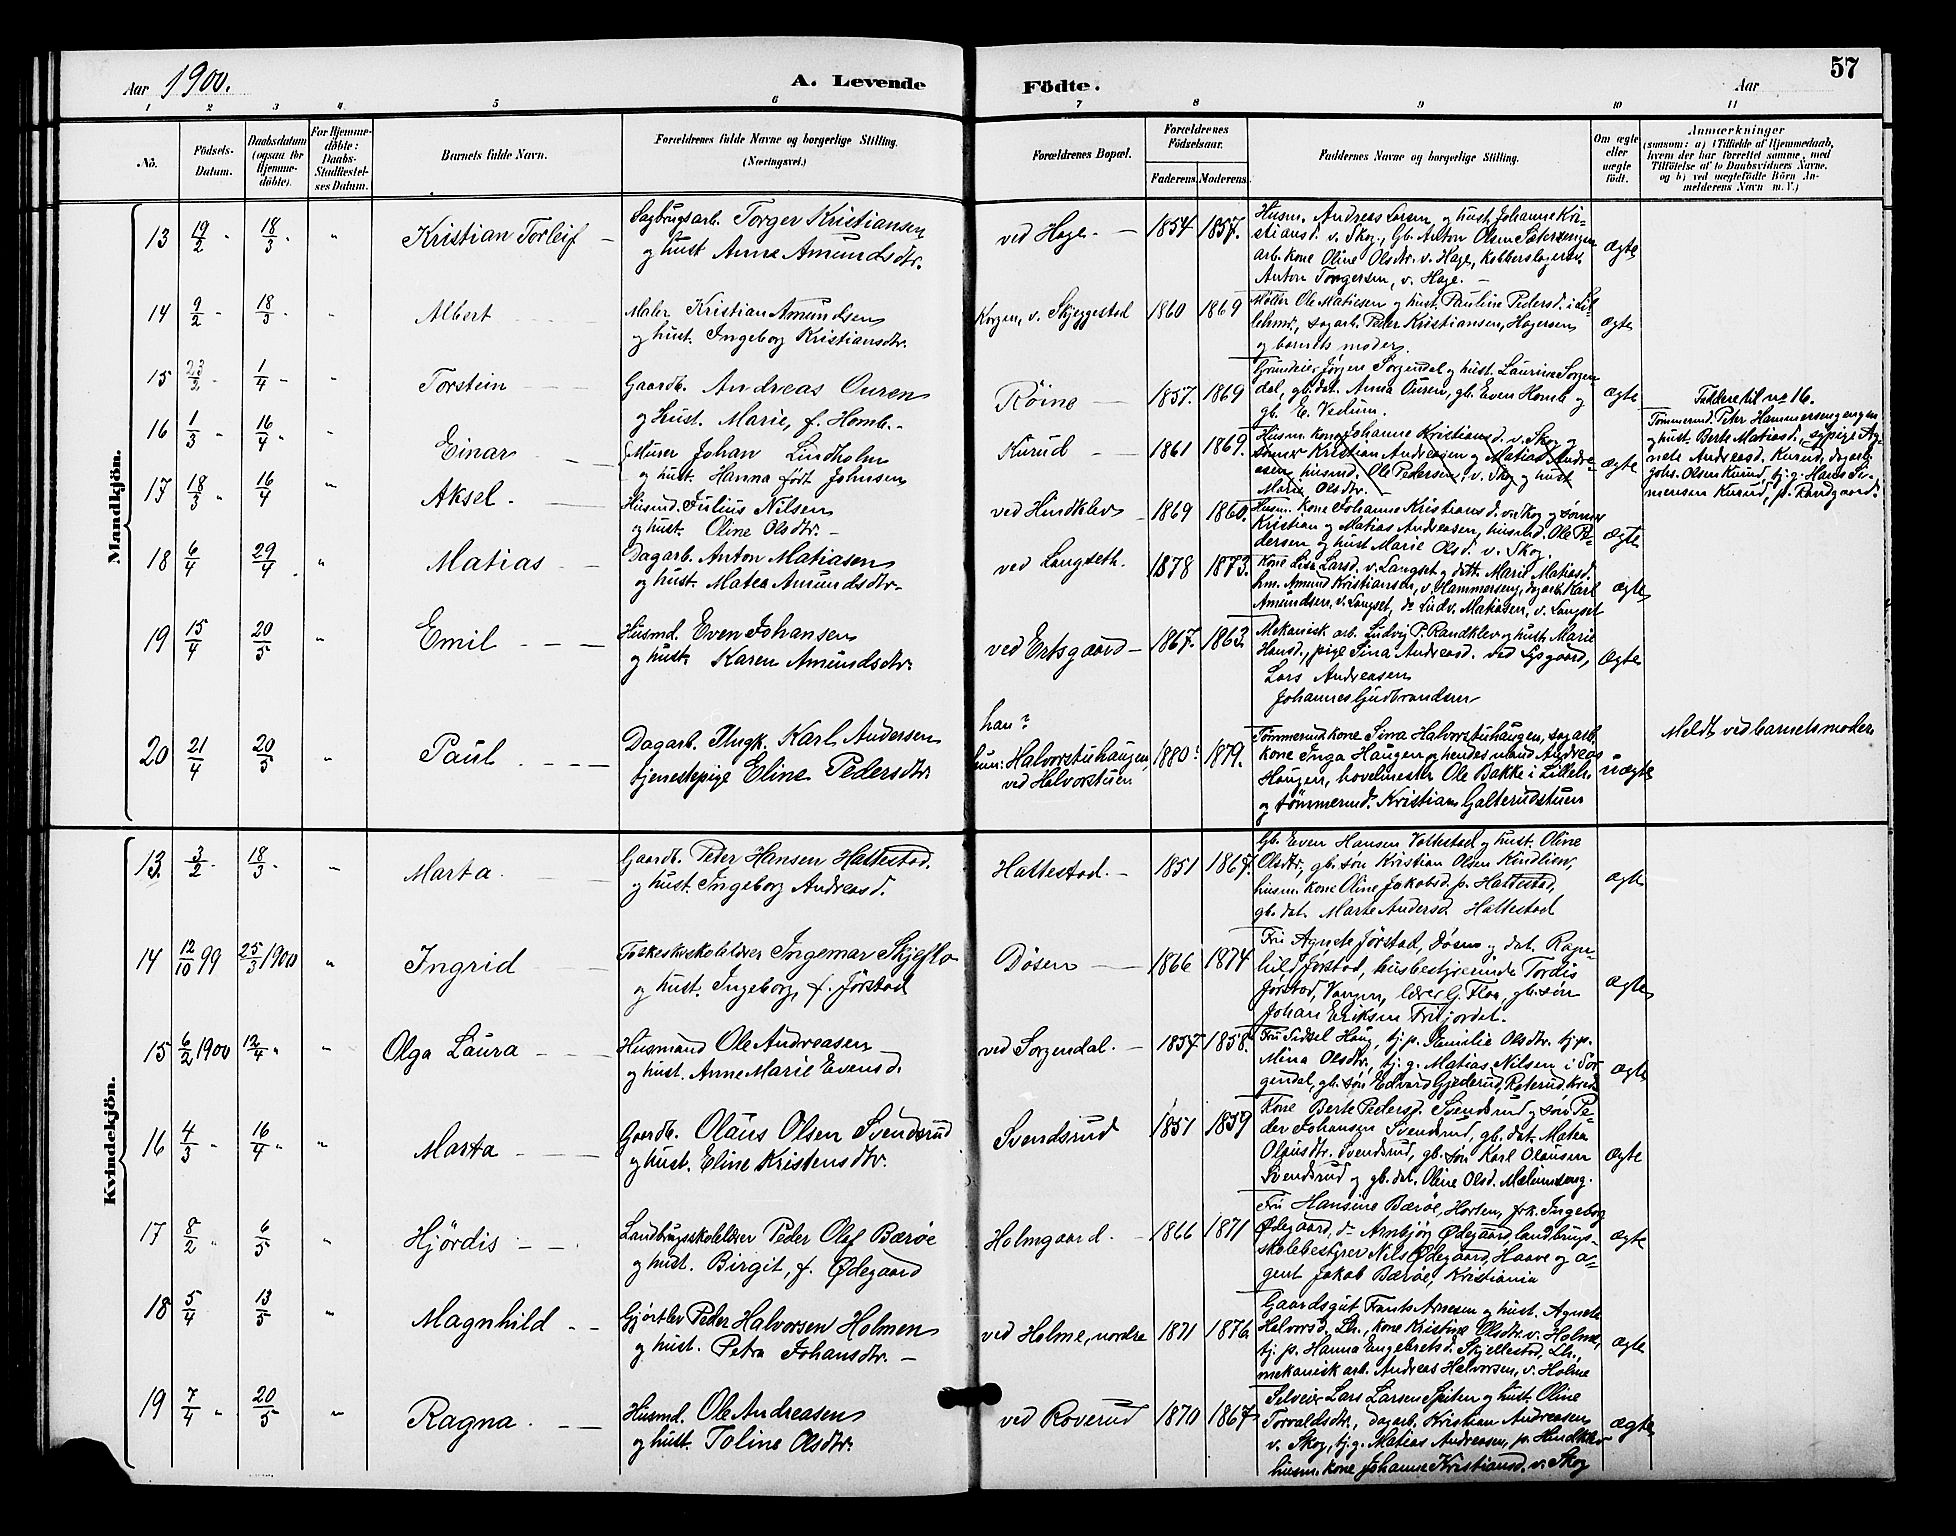 Aar 1900.
A. Levende
Födte.
Aar
57
1 2 3 4 5 6 7 8 9 10 11
No.
Födsels-Datum.
Daabsdatum (ogsaa for Hjemmedöbte).
For Hjemmedöbte: Daabs-Stadfæstelses Datum.
Barnets fulde Navn.
Forældrenes fulde Navne og borgerlige Stilling. (Næringsvei.)
Forældrenes Bopæl.
Forældrenes Födselsaar.
Faderens. Moderens.
Faddernes Navne og borgerlige Stilling.
Om ægte eller uægte födt.
Anmærkninger
(saasom: a) i Tilfælde af Hjemmedaab, hvem der har forrettet samme, med Tilföielse af to Daabsvidners Navne, og b) ved uægtefödte Börn Anmelderens Navn m. V.)
Mandkjön.
13 19/2 " 18/3 " " Kristian Torleif
Sagbrugsarb. Torger Kristiansen
og hust. Anne Amundsdtr.
ved Hage. 1854 1857.
Husm. Andreas Larsen og hust. Johanne Kri-
stiansd. v. Skog, Gb. Anton Olsen
arb. kone Oline Olsdtr. v. Hage, kobberslagersv.
Anton Torgersen, v. Hage.
ægte
14 9/2 " 18/3 " " Albert
Maler Kristian Amundsen
og hust. Ingeborg Kristiansdtr.
Korgen, v. Skjeggestad 1860 1869
Möller Ole Matiesen og hust. Pauline Pedersd. i Lil-
lehmr., sagarb. Peder Kristiansen, Hagersen
og barnets moder.
ægte
15 23/2 " 1/4 " " Torstein
Gaardb. Andreas Ouren
og hust. Marie, f. Homb.
Röine 1857. 1869
Grundeier Jörgen Sorgendal og hust. Laurine Sorgen
dal, gb. dat. Anna Ouren, gb. Even Homb og
gb. E. Vedum.
ægte
16 1/3 " 16/4 " Einar
Murer Johan Lindholm
og hust. Hanna födt Johnsen
Kurud 1861 1869.
Husm. kone Johanne Kristiansd. v. Skog og
sönner Kristian Andreasen og Matias Andre-
asen, husmd. Ole Pedersen, v. Skog og hust
Marie Olsdtr.
ægte
Faddere til no 16.
Tömmermd. Peter Hammersengengen
og hust. Berte Matiasd., sypige Ag-
nete Andreasd. Kurud, dagarb.
Johs. Olsen Kurud, tj. g. Hans Si-
mensen Kurud, p. Randgaard.
17 18/3 " 16/4 " Aksel.
Husmd. Julius Nilsen
og hust. Oline Olsdtr.
ved Hindklev 1869 1860.
Husm. kone Johanne Kristiansd. v. Skog og sönner
Kristian og Matias Andreasen, husmd. Ole Pe-
dersen og hust Marie Olsd. v. Skog.
ægte
18 6/4 29/4 " Matias
Dagarb. Anton Matiasen
og hust. Matea Amundsdtr.
ved Langseth. 1878 1873.
Kone Lise Larsd. v. Langset og datt. Marie Matiasd.
hm. Amund Kristiansen, v. Hammerseng, dagarb. Karl
Amundsen, v. Langset, do Ludv. Matiasen, v. Langset
ægte
19 15/4 20/5 " Emil
Husmd. Even Johansen
og hust. Karen Amundsdtr.
ved Ertsgaard 1867. 1863.
Mekanisk arb. Ludvig P. Randklev og hust. Marie
Hansd., pige Sina Andreasd. ved Lysgaard,
Lars Andreasen
Johannes Gudbrandsen
ægte
20 21/4 20/5 " Paul
Dagarb. Ungk. Karl Andersen
tjenestepige Eline Pedersdtr.
han?
hun: Halvorstuhaugen,
ved Halvorstuen
1880? 1879.
Tömmermd. kone Sina Halvorstuhaugen, sagarb.
kone Inga Haugen og hendes mand Andreas
Haugen, hovelmester Ole Bakke i Lilleh.
og tömmermd. Kristian Galterudstuen
uægte
Meldt ved barnets moder
Kvindekjön.
13. 3/2 " 18/3 " Marta
Gaardb. Peder Hansen Hattestad.
og hust. Ingeborg Andreasd.
Hattestad. 1851 1867.
Gb. Even Hansen Voltestad og hust. Oline
Olsdtr., gb. sön Kristian Olsen Kindlien,
husm. kone Oline Jakobsd. p. Hattestad,
gb. dat. Marte Andersd Hattestad
ægte
14 12/10 99 25/3 1900 " Ingrid
Folkeskolelærer Ingemar Skjeflo
og hust. Ingeborg, f. Jörstad
Dösen 1866 1874
Fru Agnete Jörstad, Dösen og dat. Ragn-
hild Jörstad, husbestyrerinde Tordis
Jörstad, Vangen, lærer G. Floa, gb. sön
Johan Eriksen Frisjordet.
ægte
15 6/2 1900 12/4 " " Olga Laura
Husmand Ole Andreasen
og hust. Anne Marie Evensd.
ved Sorgendal. 1857 1858.
Fru Sidsel Haug, tj. p. Emilie Olsdtr. tj. p.
Mina Olsdtr., tj. g. Matias Nilsen i Sor-
gendal, gb. sön Edvard Gjederud,
ægte
16 4/3 16/4 " " Marta
Gaardb. Olaus Olsen Svendsrud
og hust. Eline Kristensdtr.
Svendsrud 1851 1859
Kone Berte Pedersd. Svendsrud og sön Pe-
der Johansen Svendsrud, gb. dat. Matea
Olausdtr. Svendsrud, gb. sön Karl Olausen
Svendsrud og gb. dat. Oline Olsd. Mælumseng.
ægte
17 8/2 " 6/5 " Hjördis
Landbrugsskolelærer Peder Olaf Bæröe
og hust. Birgit, f. Ødegaard
Holmgaard. 1866 1871
Fru Hansine Bæröe, Horten, frk. Ingeborg
Ødegaard, do Arnbjörg Ødegaard, landbrugs-
skolebestyrer Nils Ødegaard, Haave og a-
gent Jakob Bæröe, Kristiania
ægte
18 5/4 13/5 " Magnhild
Gjörtler Peder Halvorsen Holmen
og hust. Petra Johansdtr.
ved Holme, nordre 1871 1876
Gaardsgut Frants Arnesen og hust. Agnete
Halvorsd. Lh., kone Kristine Olsdtr. v. Holme,
tj. p. Hanna Engebretsd. Skjellestad, Lh.,
mekanisk arb. Andreas Halvorsen, v. Holme
ægte
19 7/4 " 20/5 " Ragna.
Husmd. Ole Andreasen
og hust. Toline Olsdtr.
ved Roverud 1870 1867
Selveier Lars Larsen Speten og hust. Oline
Torvaldsdtr., dagarb. Kristian Andreasen
v. Skog, tj. g. Matias Andreasen, p. Hindklev
husm. kone Johanne Kristiansd. v. Skog
ægte